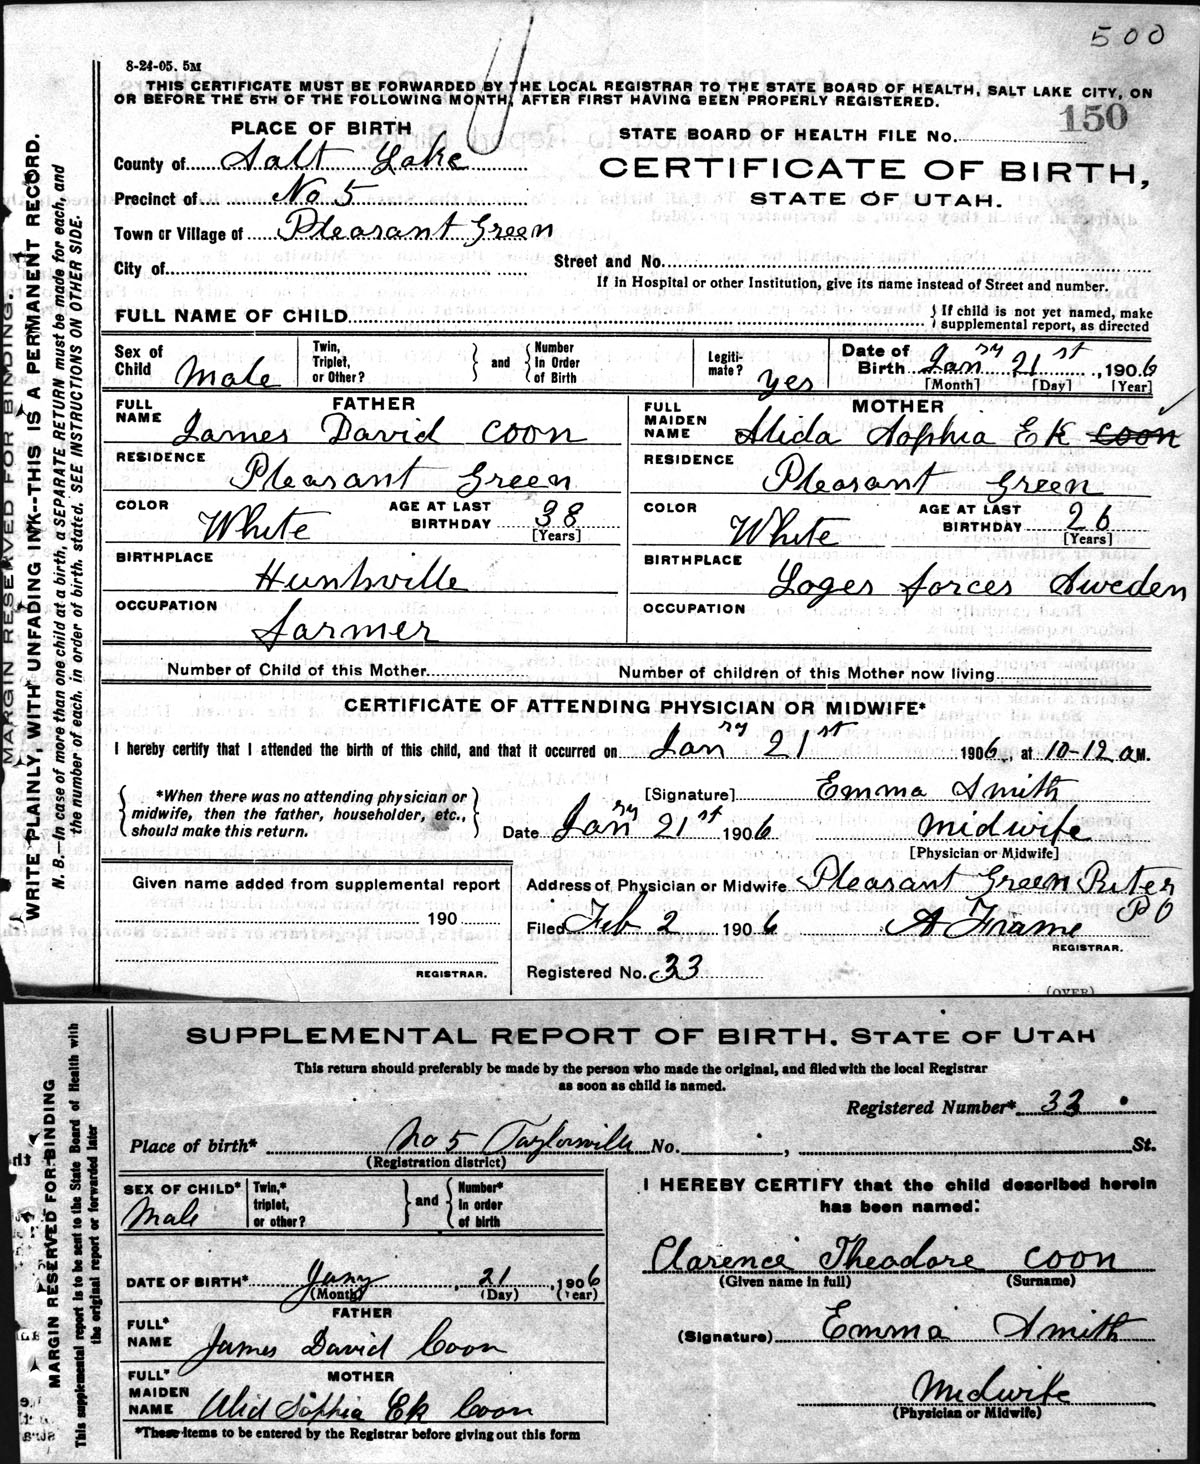 500
8-24-05. 5M
THIS CERTIFICATE MUST BE FORWARDED BY THE LOCAL REGISTRAR TO THE STATE BOARD OF HEALTH, SALT LAKE CITY, ON
OR BEFORE THE 5TH OF THE FOLLOWING MONTH, AFTER FIRST HAVING BEEN PROPERLY REGISTERED.
PLACE OF BIRTH
STATE BOARD OF HEALTH FILE No. 150
County of Salt Lake
CERTIFICATE OF BIRTH,
Precinct of No 5
STATE OF UTAH.
Town or Village of Pleasant Green
City of
Street and No.
If in Hospital or other Institution, give its name instead of Street and number.
FULL NAME OF CHILD
If child is not yet named, make
supplemental report, as directed
Sex of Child Male
Twin, Triplet, or Other?
and
Number In Order of Birth
Legitimate? yes
Date of Birth Janry 21st, 1906
[Month] [Day] [Year]
FATHER
FULL NAME James David Coon
RESIDENCE Pleasant Green
COLOR White
AGE AT LAST BIRTHDAY 38
[Years]
BIRTHPLACE Huntsville
OCCUPATION Farmer
MOTHER
FULL MAIDEN NAME Alida Sophia Ek Coon
RESIDENCE Pleasant Green
COLOR White
AGE AT LAST BIRTHDAY 26
[Years]
BIRTHPLACE Loges forces Sweden
OCCUPATION
Number of Child of this Mother
Number of children of this Mother now living
CERTIFICATE OF ATTENDING PHYSICIAN OR MIDWIFE*
I hereby certify that I attended the birth of this child, and that it occurred on Janry 21st 1906, at 10-12 a M.
*When there was no attending physician or
midwife, then the father, householder, etc.,
should make this return.
[Signature] Emma Smith
Date Janry 21st 1906 Midwife
[Physician or Midwife]
Given name added from supplemental report
190
REGISTRAR.
Address of Physician or Midwife Pleasant Green Riter
P O
Filed Feb 2 1906 A Frame
REGISTRAR.
Registered No. 33
(OVER)
MARGIN RESERVED FOR BINDING.
WRITE PLAINLY, WITH UNFADING INK--THIS IS A PERMANENT RECORD.
N. B.—In case of more than one child at a birth, a SEPARATE RETURN must be made for each, and
the number of each, in order of birth, stated. SEE INSTRUCTIONS ON OTHER SIDE.
SUPPLEMENTAL REPORT OF BIRTH. STATE OF UTAH
This return should preferably be made by the person who made the original, and filed with the local Registrar
as soon as child is named.
Registered Number* 33
Place of birth* No 5 Taylorsville No. , St.
(Registration district)
SEX OF CHILD* Male
Twin,* triplet, or other?
and
Number* In order of birth
DATE OF BIRTH* Jany 21, 1906
(Month) (Day) (Year)
FATHER
FULL* NAME James David Coon
MOTHER
FULL* MAIDEN NAME Alid Sophia Ek Coon
*These items to be entered by the Registrar before giving out this form
I HEREBY CERTIFY that the child described herein
has been named:
Clarence Theodore Coon
(Given name in full) (Surname)
(Signature) Emma Smith
Midwife
(Physician or Midwife)
MARGIN RESERVED FOR BINDING
This supplemental report is to be sent to the State Board of Health with
the original report or forwarded later